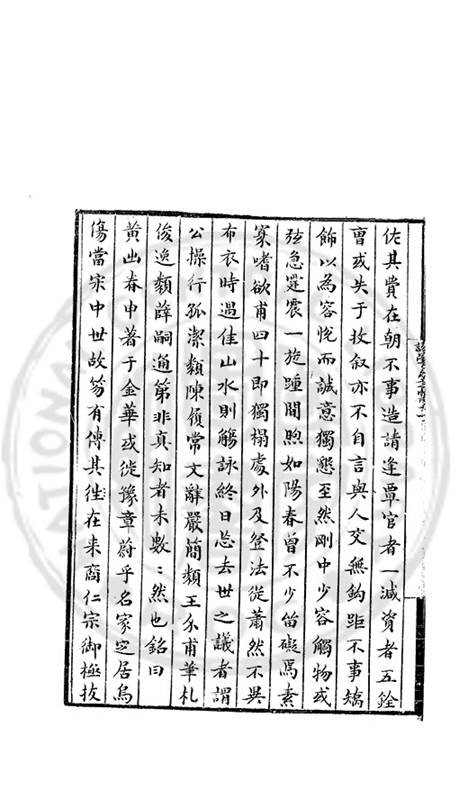 佐其費在朝不事造請逢覃官者一減資者五銓
曺或失于收叙亦不自言與人交無鈎距不事矯
飾以為容恱而誠意獨懇至然剛中少容觸物或
弦急霆震一旋踵間煦如陽春曾不少留礙焉素
寡嗜欲甫四十即獨榻處外及登法從蕭然不異
布衣時遇佳山水則觴詠終日忘去世之議者謂
公操行孤潔類陳履常文辭嚴簡類王介甫筆札
俊逸類薛嗣通第非真知者未數數然也銘曰
黄出春申著于金華或徙豫章蔚乎名家芝居烏
傷當宋中世故笏有傳其徃在来裔仁宗御極抜